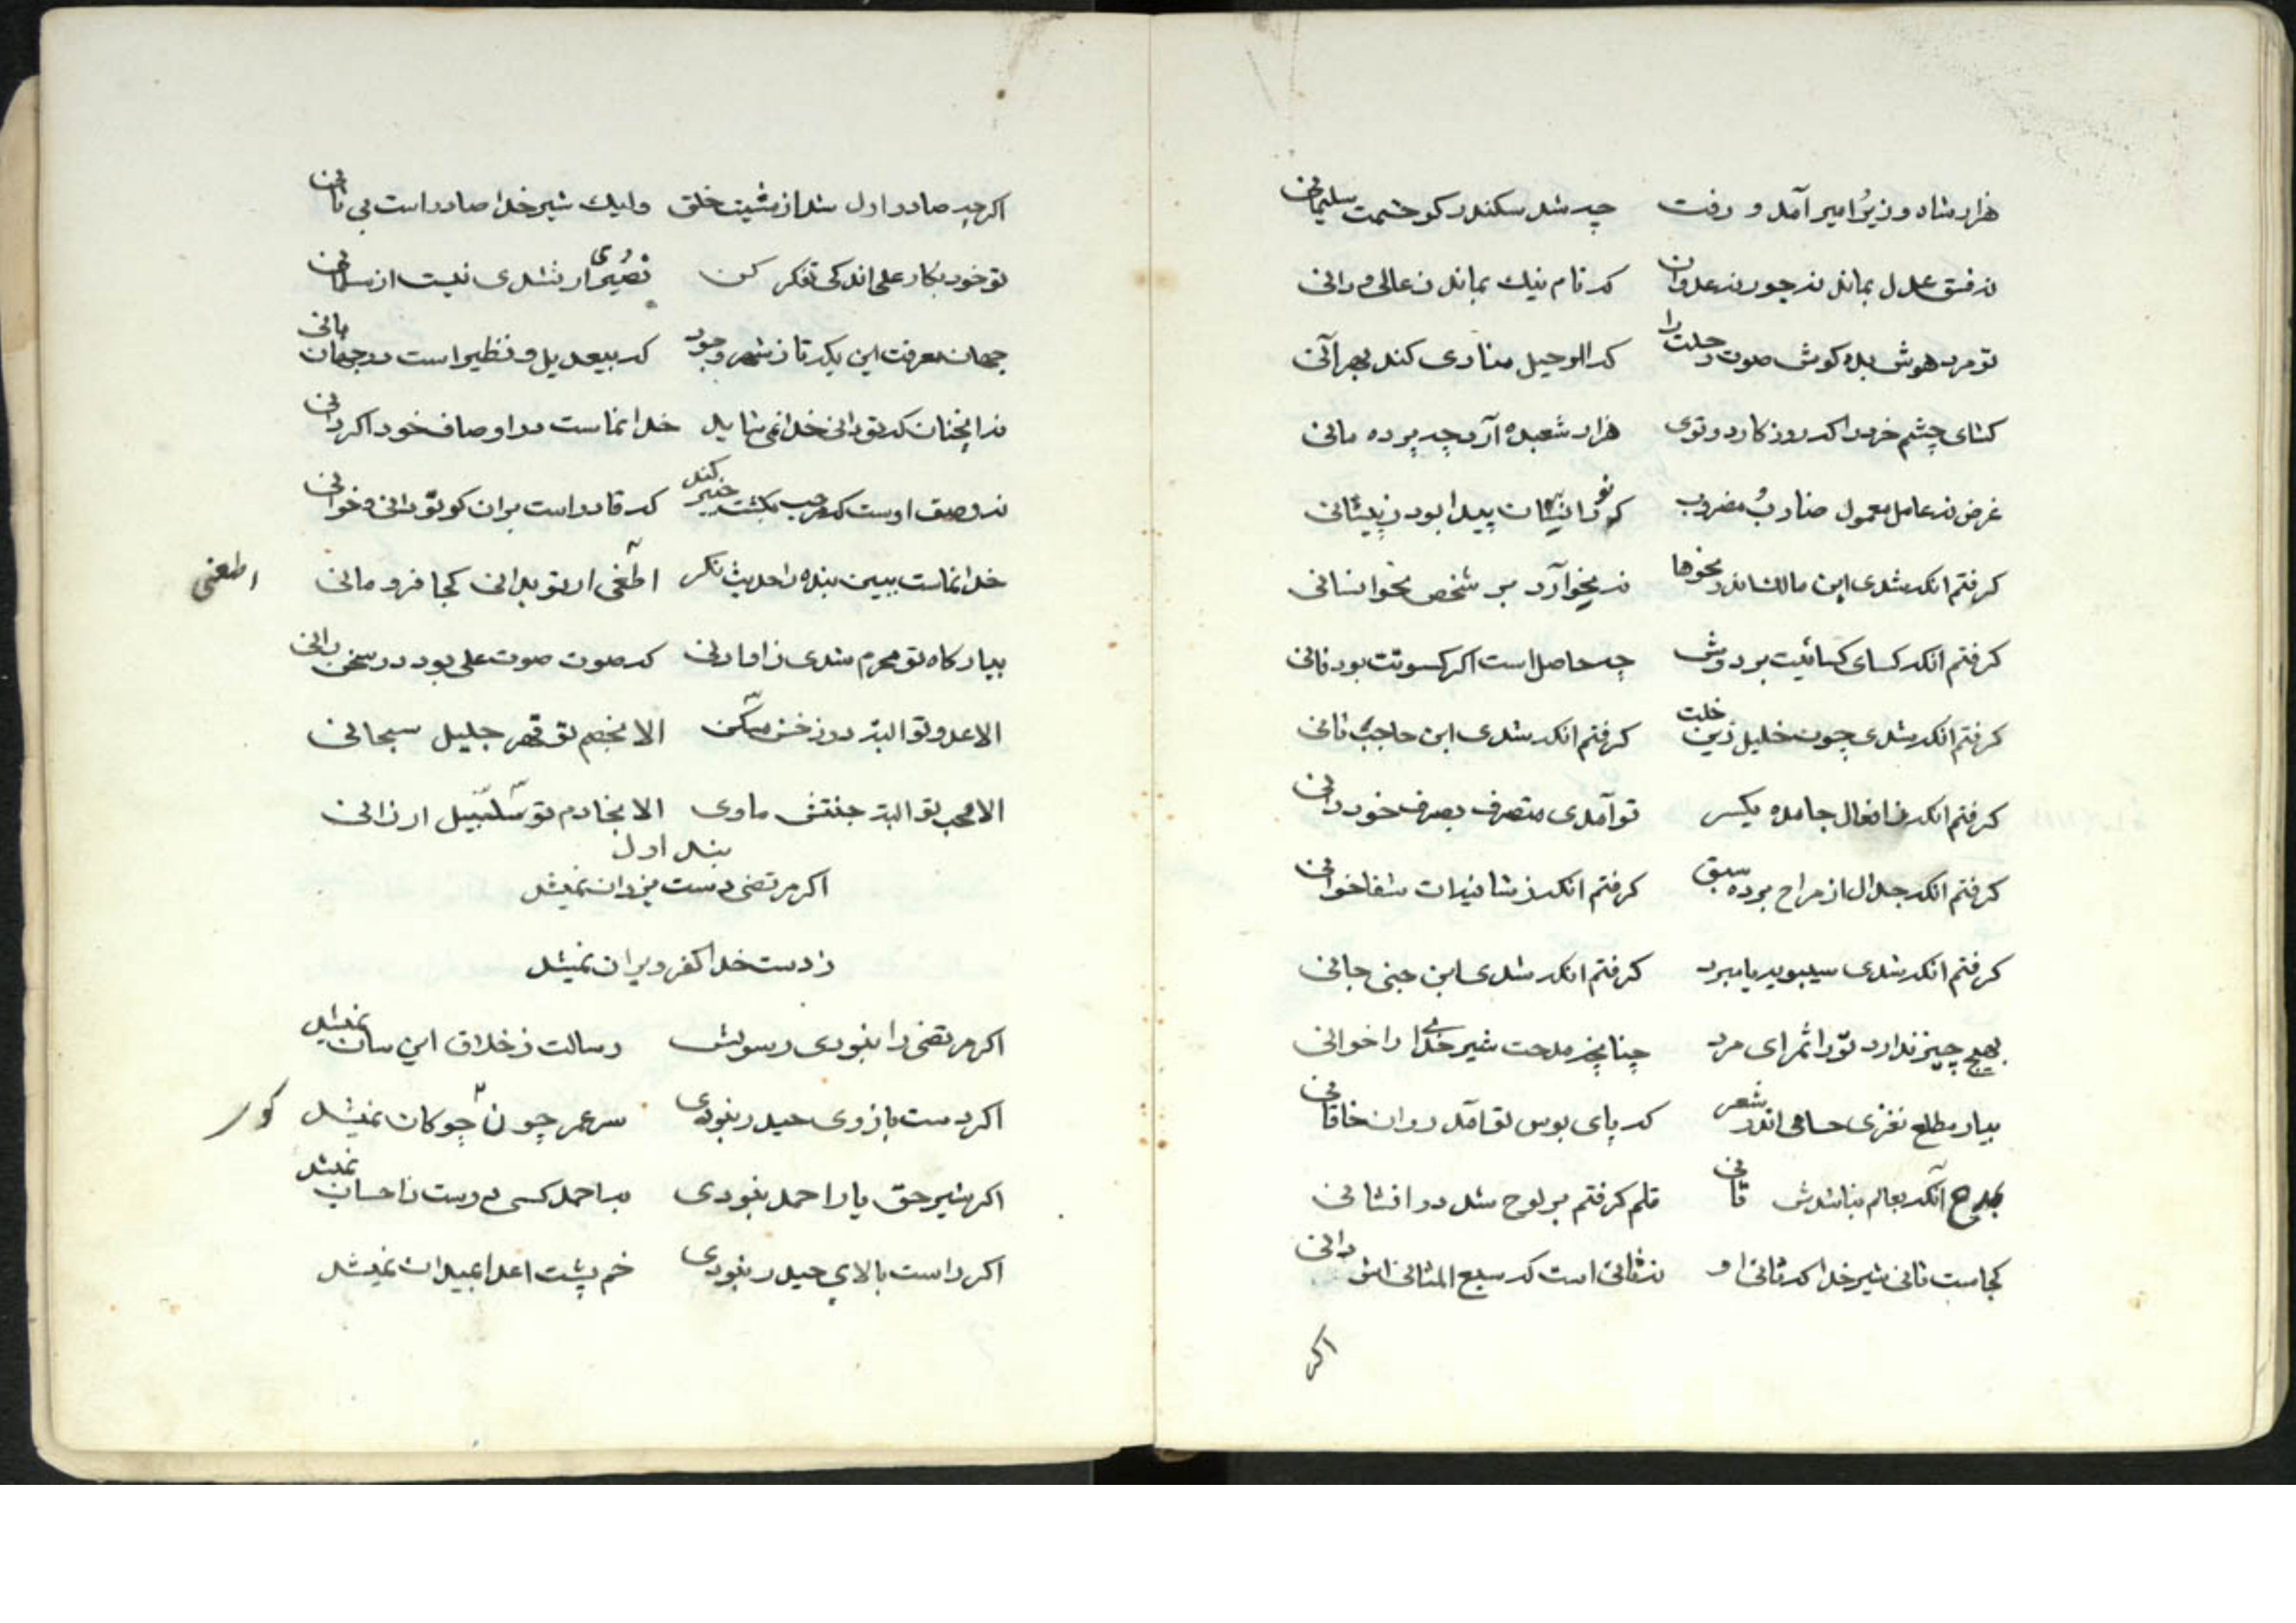 هزار شاه و وزیر و امیر آمد و رفت چه شد سکندر کو حشمت سلیمانی
نه فسق عدل بماند نه جور نه عدوان که نام نیک بماند ز عالی و دانی
تو مرد هوش بده گوش صوت رحلت را که الرحیل منادی کند بهر آنی
گشای چشم خرد را که روزگار دو توی هزار شعبده آرد چه پرده مانی
غرض نه عامل معمول ضارب و مضروب که تو را پیدا بود ز پیشانی
کرفتم انکه شدی ابن مالک اندر نحوها نه نحو آرد بر شخص نحو انسانی
کرفتم انکه کسای کسائیت بر دوش چه حاصل است اکر کسوتت بود فانی
کرفتم انکه شدی چون خلیل زین خلت کرفتم انکه شدی ابن حاجب ثانی
کرفتم انکه ز افعال جامده یکسر تو آمدی متصرف بصرف خود دانی
کرفتم انکه جدال از مراح برده سبق کرفتم انکه ز شافیه ات شفا خوانی
کرفتم انکه شدی سیبویه یا مبرد کرفتم انکه شدی ابن جنی جانی
بهیچ چیز ندارد تو را ثمر ای مرد چنانچه مدحت شیر خدای را خوانی
بیار مطلع نغزی حسامی اندر شعر که پای بوس تو آمد روان خاقانی
بمدح آنکه بعالم نباشدش ثانی قلم کرفتم بر لوح شد در افشانی
کجاست ثانی شیر خدا که ثانی او نه ثانی است که سبع المثانی اش دانی
اکر
اکرچه صادر اول شد از مشیت خلق ولیک شیر خدا صادر است بی ثانی
تو خود بکار علی اندکی تفکر کن نصیری ار نشدی نیست از مسلمانی
جهان معرفت این یکه تاز شهر وجود که بیعدیل و نظیر است در جهانبانی
نه انچنان که تو دانی خدا نمی شاید خدا نماست در اوصاف خود اکر دانی
نه وصف اوست که مرحب بکشت خیبر کند که قادر است بران کو تو دانی و خوانی
خدا نماست ببین بنده را حدیث نکر اطعنی ار تو بدانی کجا فرو مانی
اطعنی
بیار کاه تو محرم شدی ز اما دنی که صوت صوت علی بود در سخن رانی
الا عدو تو البته دوزخش مسکن الا بخصم تو قهر جلیل سبحانی
الا محب تو البته جنتش ماوی الا بخادم تو سلسبیل ارزانی
بند اول
اکر مرتضی دست یزدان نمیشد
ز دست خدا کفر ویران نمیشد
اکر مرتضی را نبودی رسولش رسالت ز خلاق این سان نمیشد
اکر دست بازوی حیدر نبودی سر عمر چون چوکان نمیشد
کور
اکر شیر حق یار احمد نبودی به احمد کسی دوست ز احسان نمیشد
اکر راست بالای حیدر نبودی خم پشت اعدا بمیدان نمیشد